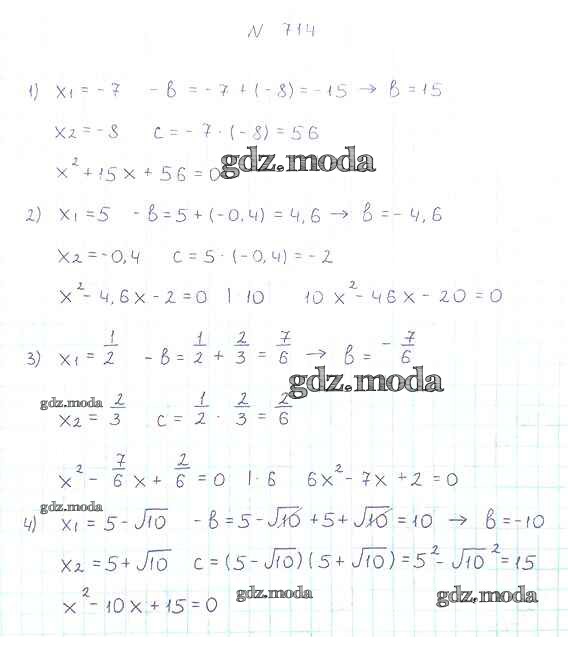 N 714
1) x₁ = -7   -в = -7 + (-8) = -15 → в = 15
x₂ = -8   c = -7 · (-8) = 56
gdz.moda
x² + 15x + 56 = 0
2) x₁ = 5   -в = 5 + (-0,4) = 4,6 → в = -4,6
x₂ = -0,4   c = 5 · (-0,4) = -2
x² - 4,6x - 2 = 0 | · 10   10x² - 46x - 20 = 0
3) x₁ = 1/2   -в = 1/2 + 2/3 = 7/6 → в = -7/6
gdz.moda
gdz.moda
x₂ = 2/3   c = 1/2 · 2/3 = 2/6
x² - 7/6 x + 2/6 = 0 | · 6   6x² - 7x + 2 = 0
gdz.moda
4) x₁ = 5 - √10   -в = 5 - √10 + 5 + √10 = 10 → в = -10
x₂ = 5 + √10   c = (5 - √10)(5 + √10) = 5² - √10² = 15
gdz.moda   gdz.moda
x² - 10x + 15 = 0